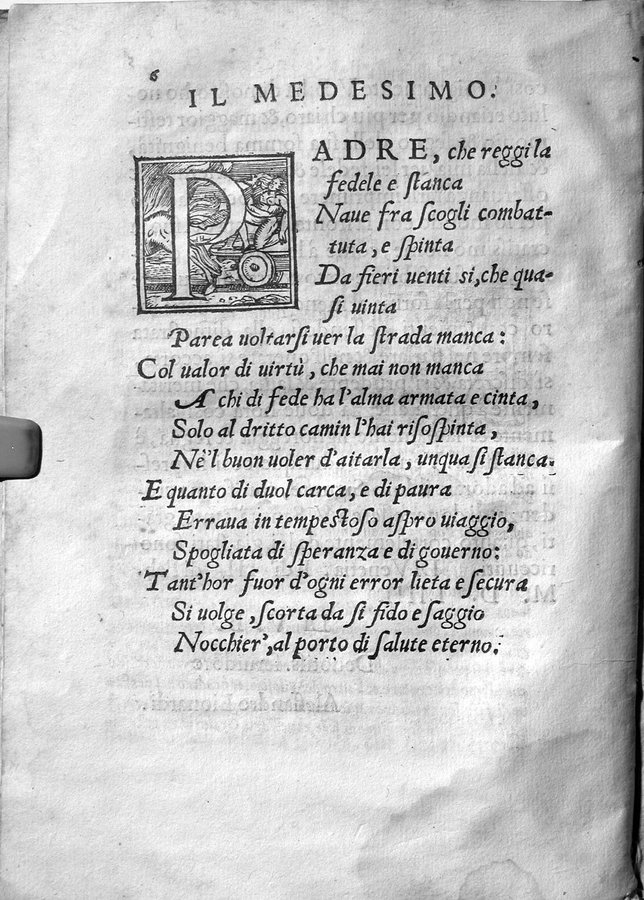 6
IL MEDESIMO.
PADRE, che reggi la
fedele e stanca
Naue fra scogli combat-
tuta, e spinta
Da fieri uenti si, che qua-
si uinta
Parea uoltarsi uer la strada manca:
Col ualor di uirtù, che mai non manca
A chi di fede ha l'alma armata e cinta,
Solo al dritto camin l'hai risospinta,
Nè'l buon uoler d'aitarla, unqua si stanca.
E quanto di duol carca, e di paura
Erraua in tempestoso aspro uiaggio,
Spogliata di speranza e di gouerno:
Tant'hor fuor d'ogni error lieta e secura
Si uolge, scorta da si fido e saggio
Nocchier', al porto di salute eterno.